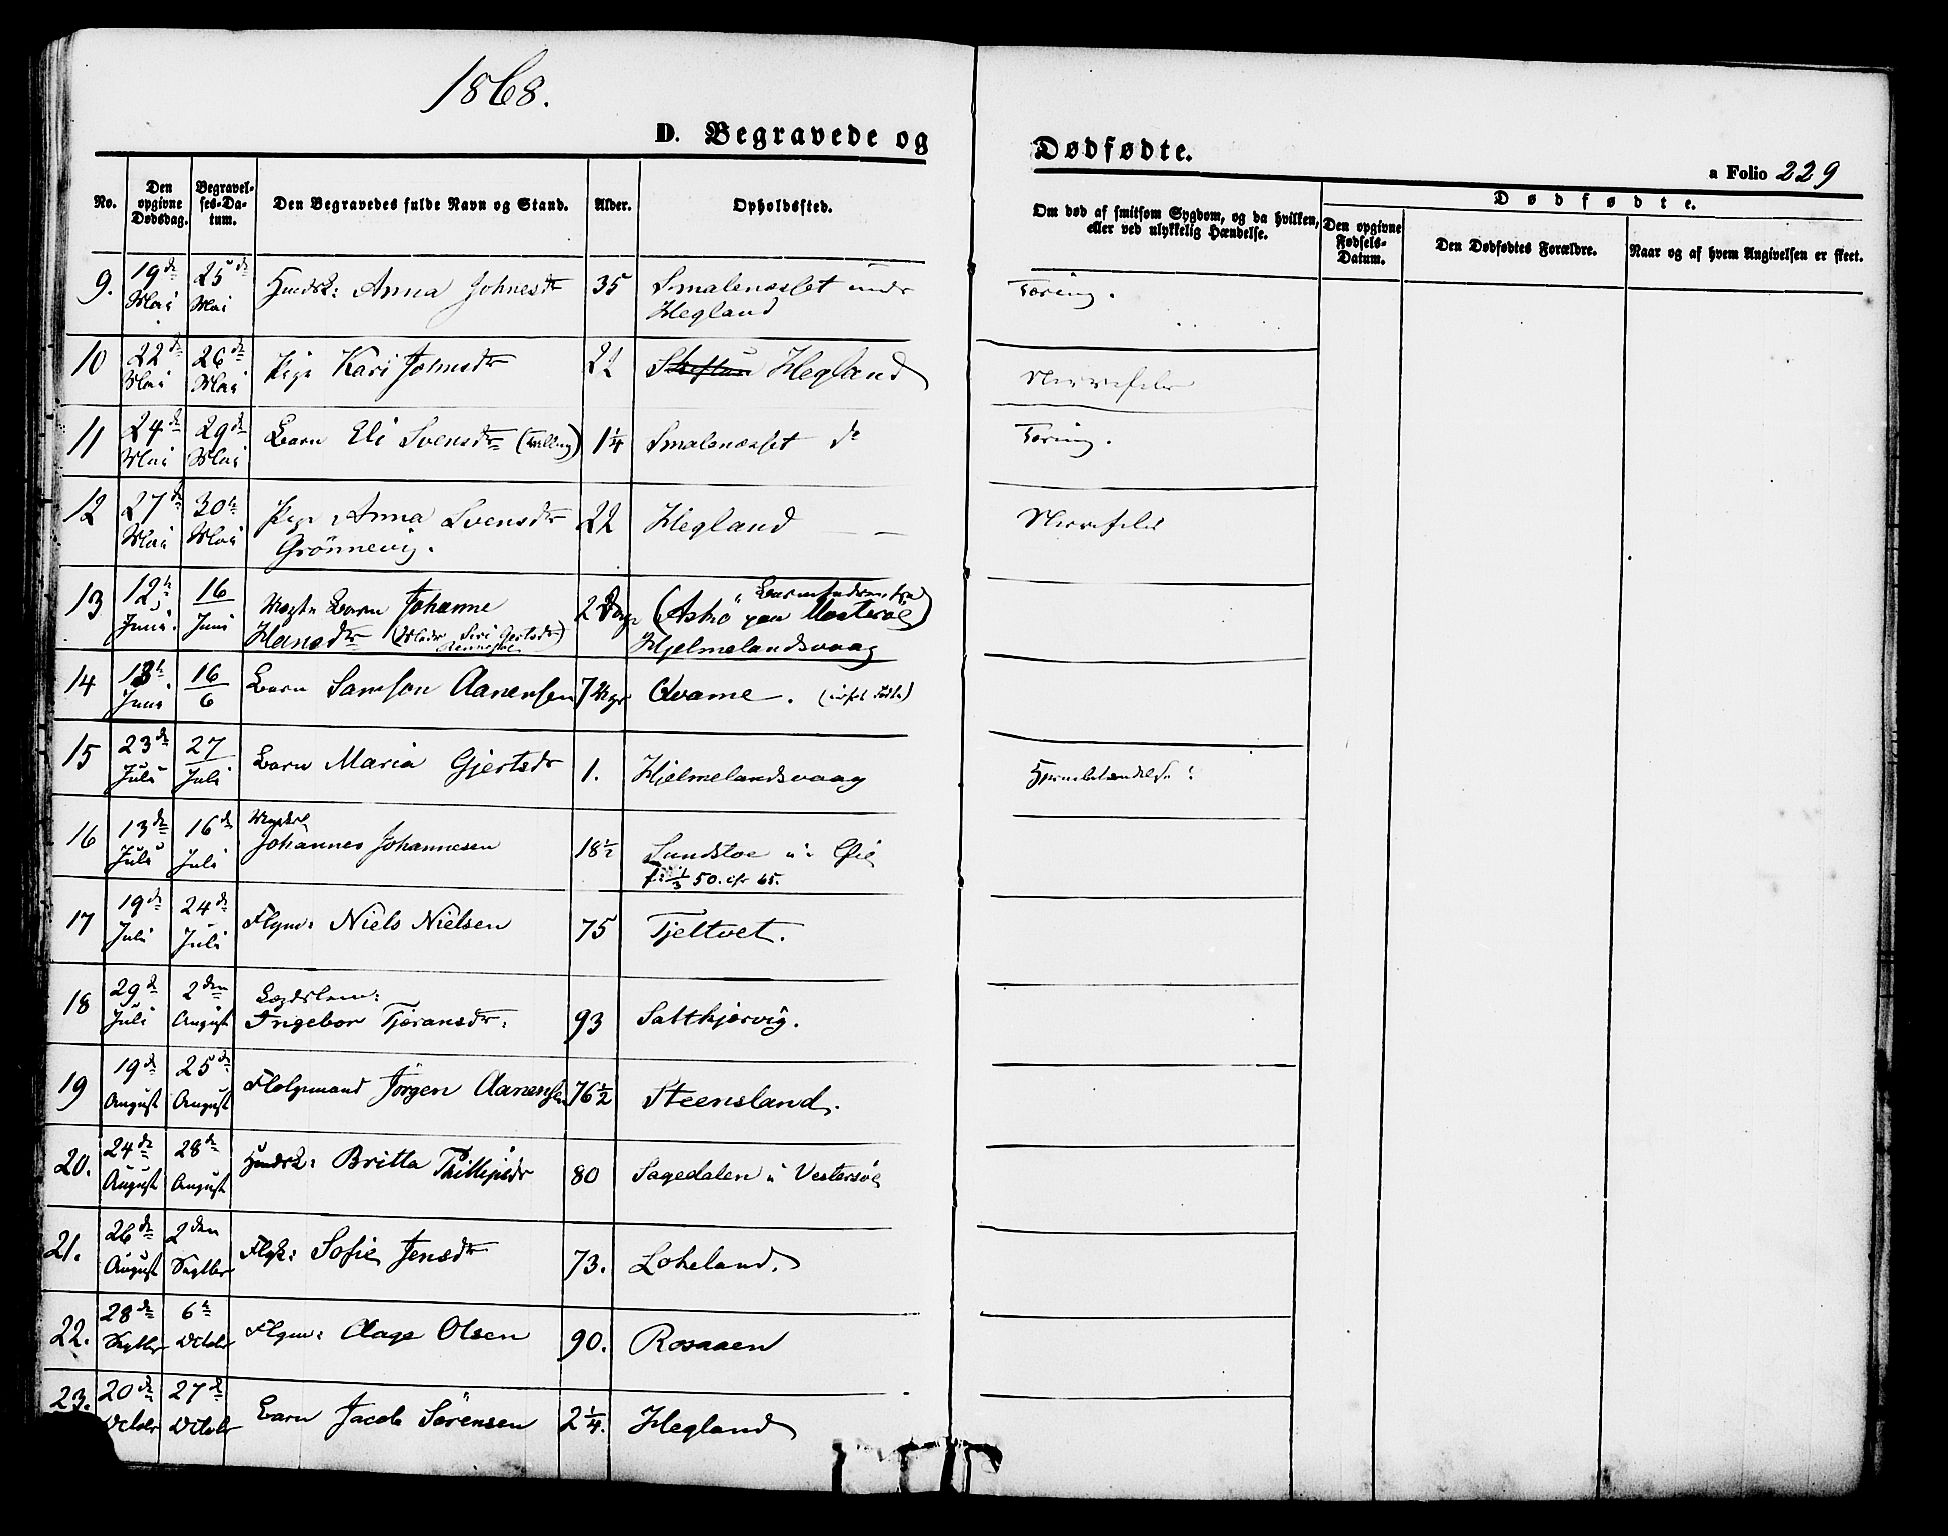 1868.
D. Begravede og Dødfødte.
a Folio 229
No.
Den opgivne Dødsdag.
Begravelses-Datum.
Den Begravedes fulde Navn og Stand.
Alder.
Opholdssted.
Om død af smitsom Sygdom, og da hvilken, eller ved ulykkelig Hændelse.
Dødfødte.
Den opgivne Fødsels-Datum.
Den Dødfødtes Forældre.
Naar og af hvem Angivelsen er skeet.
9. 19de Mai 25de Mai Anna Johnesdr 35 Smalenæsset under Hegland Tæring.
10 22de Mai 26de Mai Pige Kari Johnsdr 22 Hegland Nervefeber
11 24de Mai 29de Mai Barn Eli Svensdr (Tvilling) 1 1/4 Smalenæsset do Tæring.
12 27de Mai 30te Mai Pige Anna Svensdr 22 Hegland Nervefeber
Grönnevig.
13 12te Juni 16 Juni Barn Johanne 2 Dage (Askö paa Mosteröe)
Hansdr (Moder Siri Gjertsdr) Hjelmelandsvaag
14 13te Juni 16/6 Barn Samson Aanensen 7 Uger Qvame.
15 23de Juli 27 Juli Barn Maria Gjertsdr 1. Hjelmelandsvaag Hjernebetændelse
16 13de Juli 16de Juli Johannes Johannesen 18 1/2 Sundstøe u:
1/3 50. cfr 65.
17 19de Juli 24de Juli Flgm: Niels Nielsen 75 Tjeltvet.
18 29de Juli 2den August Lægdslem:
Ingebor Tjøransdr: 93 Saltkjærvig.
19 19de August 25de August Flolgemand Jörgen Aanensen 76 1/2 Steensland.
20. 24de August 28de August Britta 80 Sagedalen u Vestersöe
21. 26de August 2den Septbr Flgk: Sofie Jensdr 73. Lokeland.
22. 28de Septbr 6te Octobr Flgm: Aage Olsen 90. Rosaaen
23. 20de Octobr 27de Octobr Barn Jacob Sörensen 2 1/4. Hegland